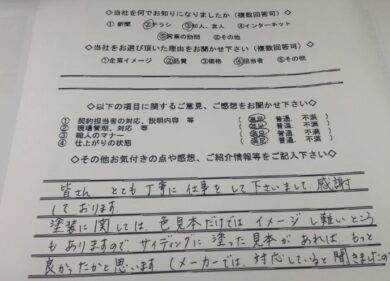 ◇当社を何でお知りになりましたか（複数回答可）
① 新聞 ②チラシ ③知人、友人 ④インターネット
⑤営業の訪問 ⑥その他
◇当社をお選び頂いた理由をお聞かせ下さい（複数回答可）
①企業イメージ ②品質 ③価格 ④担当者 ⑤その他
◇以下の項目に関するご意見、ご感想をお聞かせ下さい◇
① 契約担当者の対応、説明内容 等 （満足 普通 不満
② 現場管理、対応 等 （満足 普通 不満
③ 職人のマナー （満足 普通 不満
④ 仕上がりの状態 （満足 普通 不満
◇その他お気付きの点や感想、ご紹介情報等をご記入下さい◇
皆さん、とても丁寧に仕事をして下さいまして、感謝
しております。
塗装に関しては、色見本だけではイメージし難いところ
もありますので、サイディングに塗った見本があれば、もっと
良かったかと思います（メーカーでは、対応していると聞きましたの